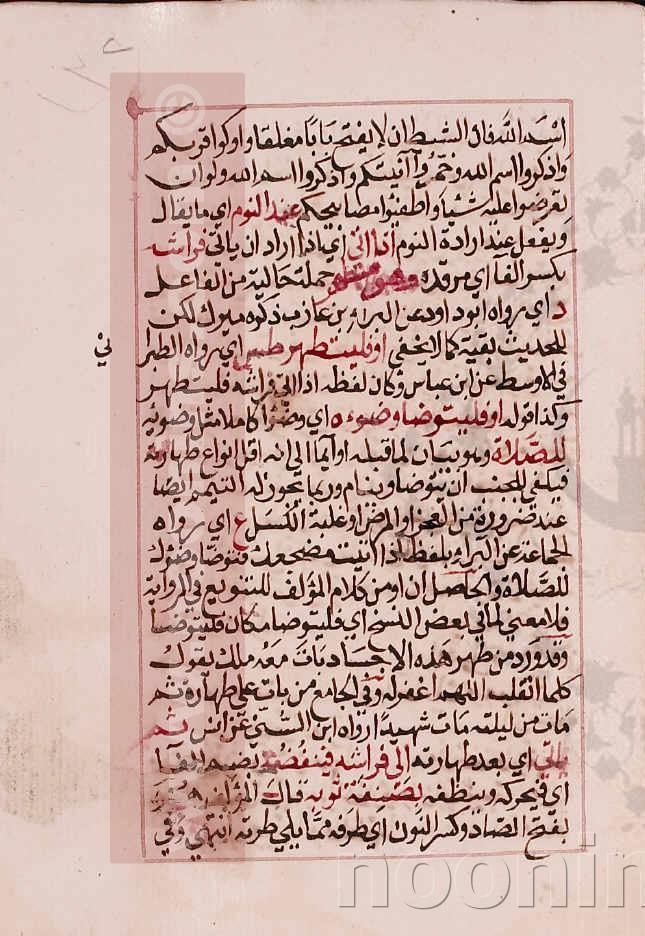 اسم الله فان الشيطان لا يفتح بابا مغلقا واوكوا قربكم
واذكروا اسم الله وخمروا آنيتكم واذكروا اسم الله ولو ان
تعرضوا عليه شيئا واطفئوا مصابيحكم عند النوم اي ما يقال
ويفعل عند ارادة النوم اذا اتى اي اذا اراد ان ياتي فراشه
بكسر الفا اي مرقده وهو جملة حالية من الفاعل
د اي رواه ابو داود عن البراء بن عازب ذكره ميرك لكن
للحديث بقية كما لا يخفى او فليتطهر طس اي رواه الطبرا
ني
في الاوسط عن ابن عباس وكان لفظه اذا اتى فراشه فليتطهر
وكذا قوله او فليتوضا وضوءه اي وضوءا كاملا مثل وضوئه
للصلاة وهو بيان لما قبله او ايما الى انه اقل انواع طهارته
فيكفي للجنب ان يتوضا وينام وربما يجوز له التيمم ايضا
عند ضرورة من العجز والمرض او غلبة الكسل ع اي رواه
الجماعة عن البراء بلفظ اذا اتيت مضجعك فتوضا وضوءك
للصلاة والحاصل ان او من كلام المؤلف للتنويع في الرواية
فلا معنى لما في بعض النسخ اي فليتوضا مكان فليتوضا
وقد ورد من طهر هذه الاجساد بات معه ملك يقول
كلما انقلب اللهم اغفر له وفي الجامع من بات على طهارة ثم
مات من ليلته مات شهيدا رواه ابن السني عن انس ثم
ياتي اي بعد طهارته الى فراشه فينفضه بضم الفا
اي فيحركه وينظفه بصنفة ثوبه قال المؤلف هي
بفتح الصاد وكسر النون اي طرفه مما يلي طرته انتهى وفي
noonin